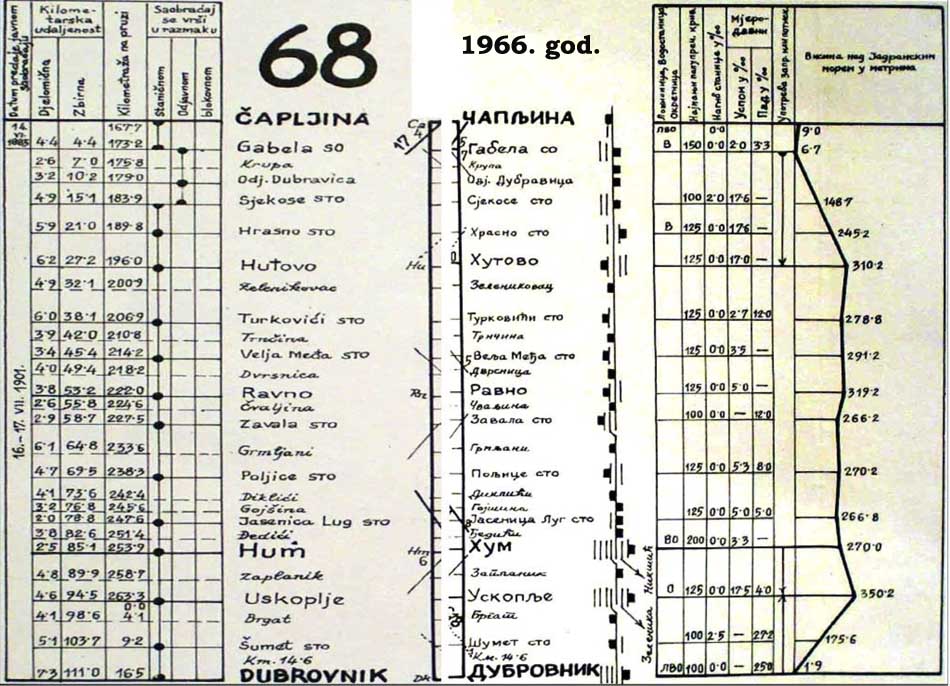 68
1966. god.
Datum predaje javnom saobraćaju
Kilometarska udaljenost
Djelomična
Zbirna
Kilometraža na pruzi
Saobraćaj se vrši u razmaku
Staničnom
Odjavnom
blokovnom
Најмањи полупреч. крив.
Нагиб станице у ‰
Мјеродавни
Успон у ‰
Пад у ‰
Висина над Јадранским морем у метрима
167.7 ČAPLJINA Ča ЧАПЉИНА ЛВО 0.0 9.0
4.4 4.4 173.2 Gabela SO 17 Габела СО В 150 0.0 2.0 3.3 6.7
2.6 7.0 175.8 Krupa Крупа
3.2 10.2 179.0 Odj. Dubravica Одј. Дубравица
4.9 15.1 183.9 Sjekose STO Сјекосе СТО 100 2.0 17.6 — 148.7
5.9 21.0 189.8 Hrasno STO Храсно СТО В 125 0.0 17.6 — 245.2
6.2 27.2 196.0 Hutovo Hu Хутово 125 0.0 17.0 — 310.2
4.9 32.1 200.9 Zelenikovac Зелениковац
6.0 38.1 206.9 Turkovići STO Турковићи СТО 125 0.0 2.7 12.0 278.8
3.9 42.0 210.8 Trnčina Трнчина
3.4 45.4 214.2 Velja Međa STO Веља Међа СТО 125 0.0 3.5 — 291.2
4.0 49.4 218.2 Dvrsnica Дврсница
3.8 53.2 222.0 Ravno Равно 125 0.0 5.0 — 319.2
2.6 55.8 224.6 Čvaljina Чваљина
2.9 58.7 227.5 Zavala STO Завала СТО 100 0.0 — 12.0 266.2
6.1 64.8 233.6 Grmljani Грмљани
4.7 69.5 238.3 Poljice STO Пољице СТО 125 0.0 5.3 8.0 270.2
4.1 73.6 242.4 Diklići Диклићи
3.2 76.8 245.6 Gojšina Гојшина
2.0 78.8 247.6 Jasenica Lug STO Јасеница Луг СТО 125 0.0 5.0 5.0 266.8
3.8 82.6 251.4 Đedići Ђедићи
2.5 85.1 253.9 Hum Hm 6 Хум ВО 200 0.0 3.3 — 270.0
4.8 89.9 258.7 Zaplanik Запланик
4.6 94.5 263.3 Uskoplje Ускопље О 125 0.0 17.5 4.0 350.2
0.0
4.1 98.6 4.1 Brgat Бргат
5.1 103.7 9.2 Šumet STO Шумет СТО 100 2.5 — 27.2 175.6
Km. 14.6 Км. 14.6
7.3 111.0 16.5 DUBROVNIK Dk ДУБРОВНИК ЛВО 100 0.0 — 25.0 1.9
16.– 17. VII. 1901.
Никшић
Зеленика